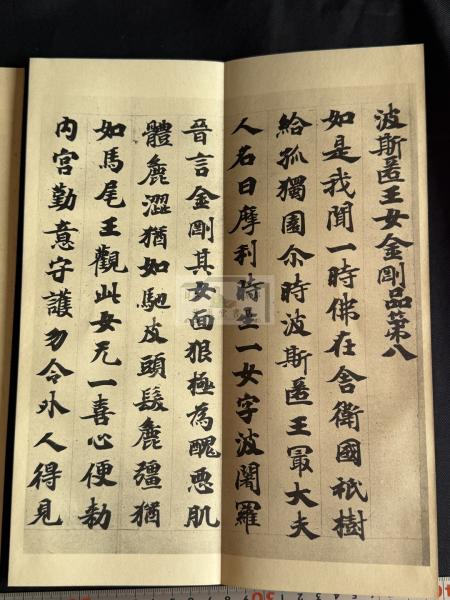 波斯匿王女金剛品第八
如是我聞一時佛在舎衛國祇樹
給孤獨園尒時波斯匿王㝡大夫
人名曰摩利時生一女字波闍羅
晉言金剛其女面狠極為醜悪肌
體麁澀猶如馳皮頭髮麁彊猶
如馬尾王觀此女无一喜心便勅
内宮勤意守護勿令外人得見